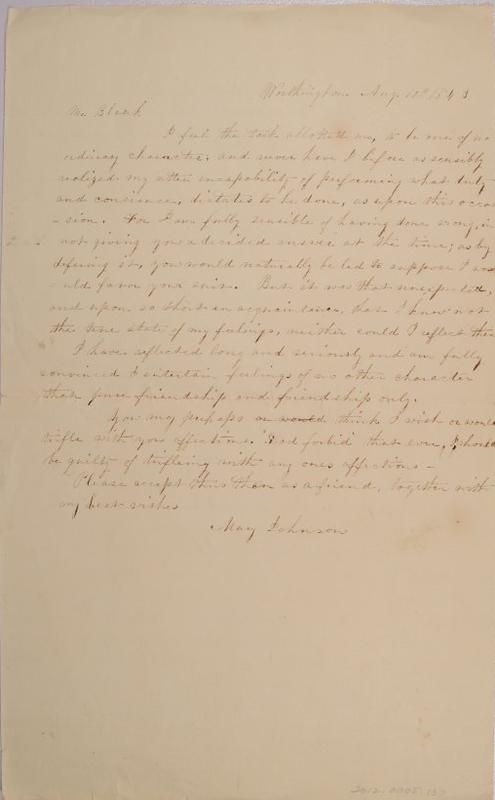 Worthington Aug 12th 1843
Mr Blank
I feel the task allotted me, to be one of no
ordinary character, and never have I before so sensibly
realized my utter incapability of performing what duty
and conscience, dictates to be done, as upon this occa
- sion. For I am fully sensible of having done wrong, in
not giving you a decided answer at the time; as by
defering it, you would naturally be led to suppose I wo
uld favor your suit. But it was that unexpected,
and upon so short an acquaintance, that I knew not
the true state of my feelings, neither could I reflect then
I have reflected long and seriously and am fully
convinced I entertain feelings of no other character
than pure friendship and friendship only.
You may perhaps or would think I wish or would
trifle with your affections. God forbid that ever, I should
be guilty of trifleing with any ones affections -
Please accept this then as a friend, together with
my best wishes
May Johnson
2012.0005.137